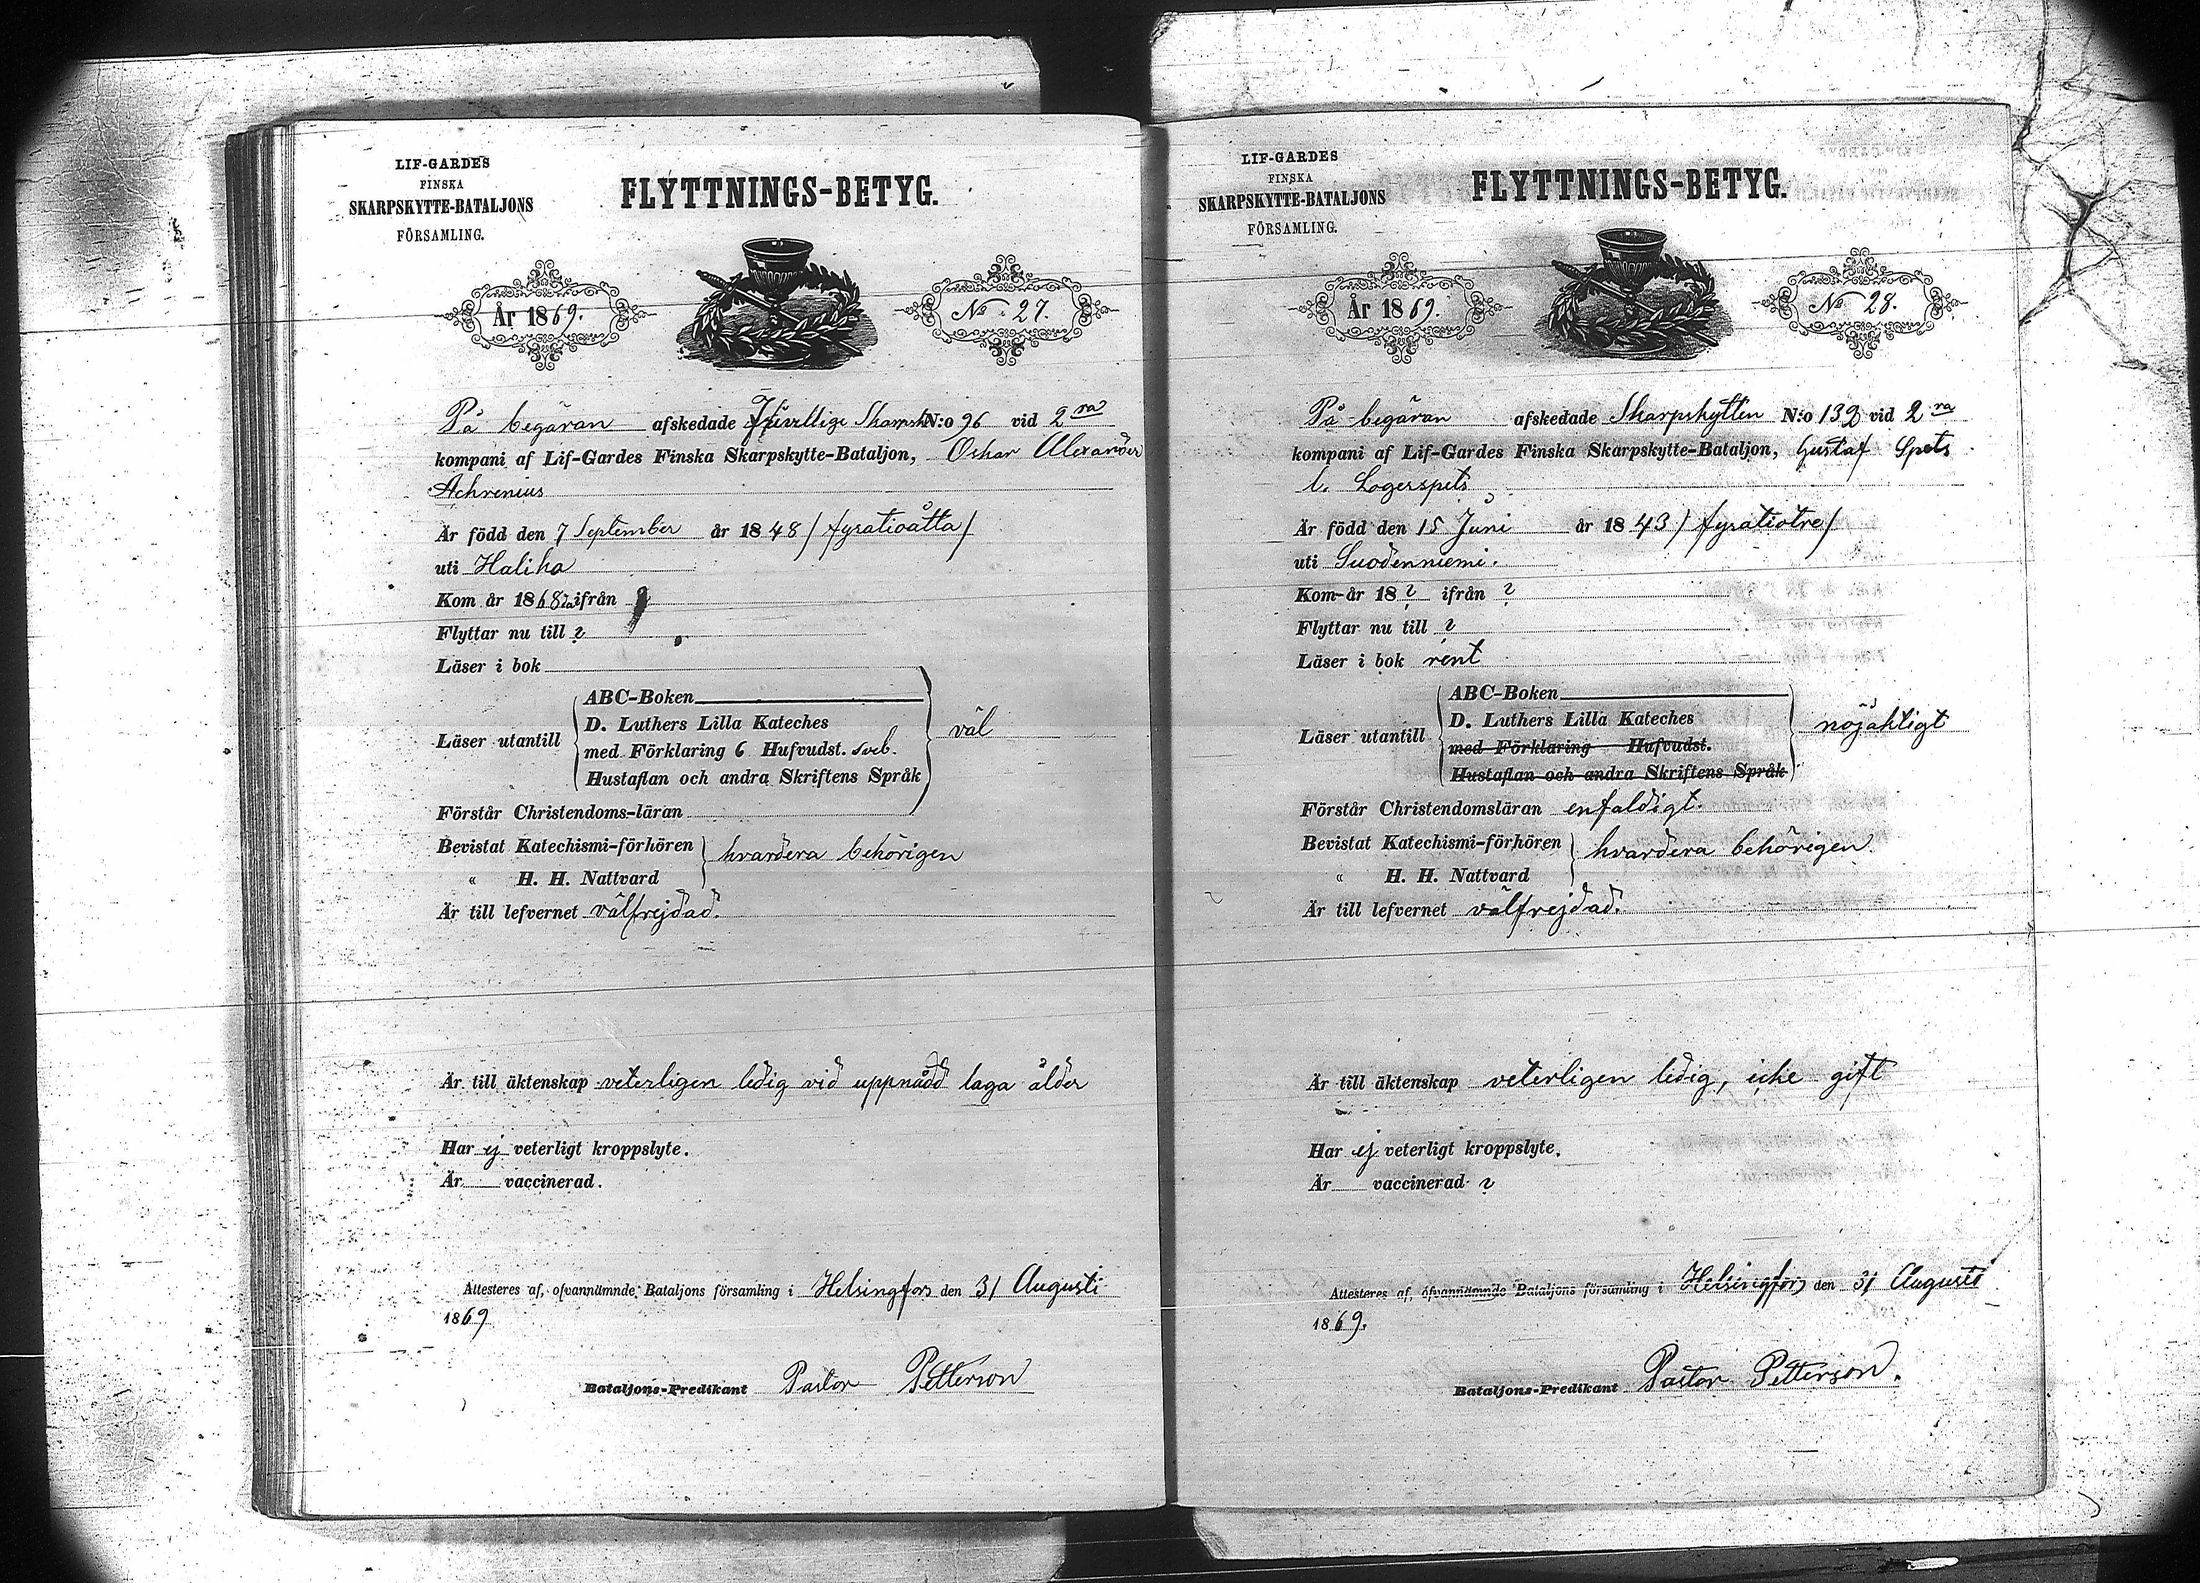 LIF-GARDES
FINSKA
SKARPSKYTTE-BATALJONS
FÖRSAMLING.
FLYTTNINGS-BETYG.
År 1869.
No 27.
På begäran afskedade Frivillige Skarpsk N:o 96 vid 2ra
kompani af Lif-Gardes Finska Skarpskytte-Bataljon, Oskar Alexander
Achrenius
Är född den 7 September år 1848 / fyratioåtta /
uti Haliko
Kom år 1868 ifrån ?
Flyttar nu till ?
Läser i bok
Läser utantill
ABC-Boken
D. Luthers Lilla Kateches
med Förklaring 6 Hufvudst. sveb.
Hustaflan och andra Skriftens Språk
väl
Förstår Christendoms-läran
Bevistat Katechismi-förhören
« H. H. Nattvard
hvardera behörigen
Är till lefvernet välfrejdad.
Är till äktenskap veterligen ledig vid uppnådd laga ålder
Har ej veterligt kroppslyte.
Är vaccinerad.
Attesteras af, ofvannämnde Bataljons församling i Helsingfors den 31 Augusti
1869
Bataljons-Predikant Pastor Petterson
LIF-GARDES
FINSKA
SKARPSKYTTE-BATALJONS
FÖRSAMLING.
FLYTTNINGS-BETYG.
År 1869.
No 28.
På begäran afskedade Skarpskytten N:o 132 vid 2ra
kompani af Lif-Gardes Finska Skarpskytte-Bataljon, Gustaf Spets
l. Logerspets
Är född den 15 Juni år 1843 / fyratiotre /
uti Suodenniemi.
Kom år 18 ? ifrån ?
Flyttar nu till ?
Läser i bok rent
Läser utantill
ABC-Boken
D. Luthers Lilla Kateches
med Förklaring Hufvudst.
Hustaflan och andra Skriftens Språk
nöjaktigt
Förstår Christendomsläran enfaldigt.
Bevistat Katechismi-förhören
« H. H. Nattvard
hvardera behörigen
Är till lefvernet välfrejdad.
Är till äktenskap veterligen ledig, icke gift
Har ej veterligt kroppslyte.
Är vaccinerad ?
Attesteras af, ofvannämnde Bataljons församling i Helsingfors den 31 Augusti
1869.
Bataljons-Predikant Pastor Petterson.